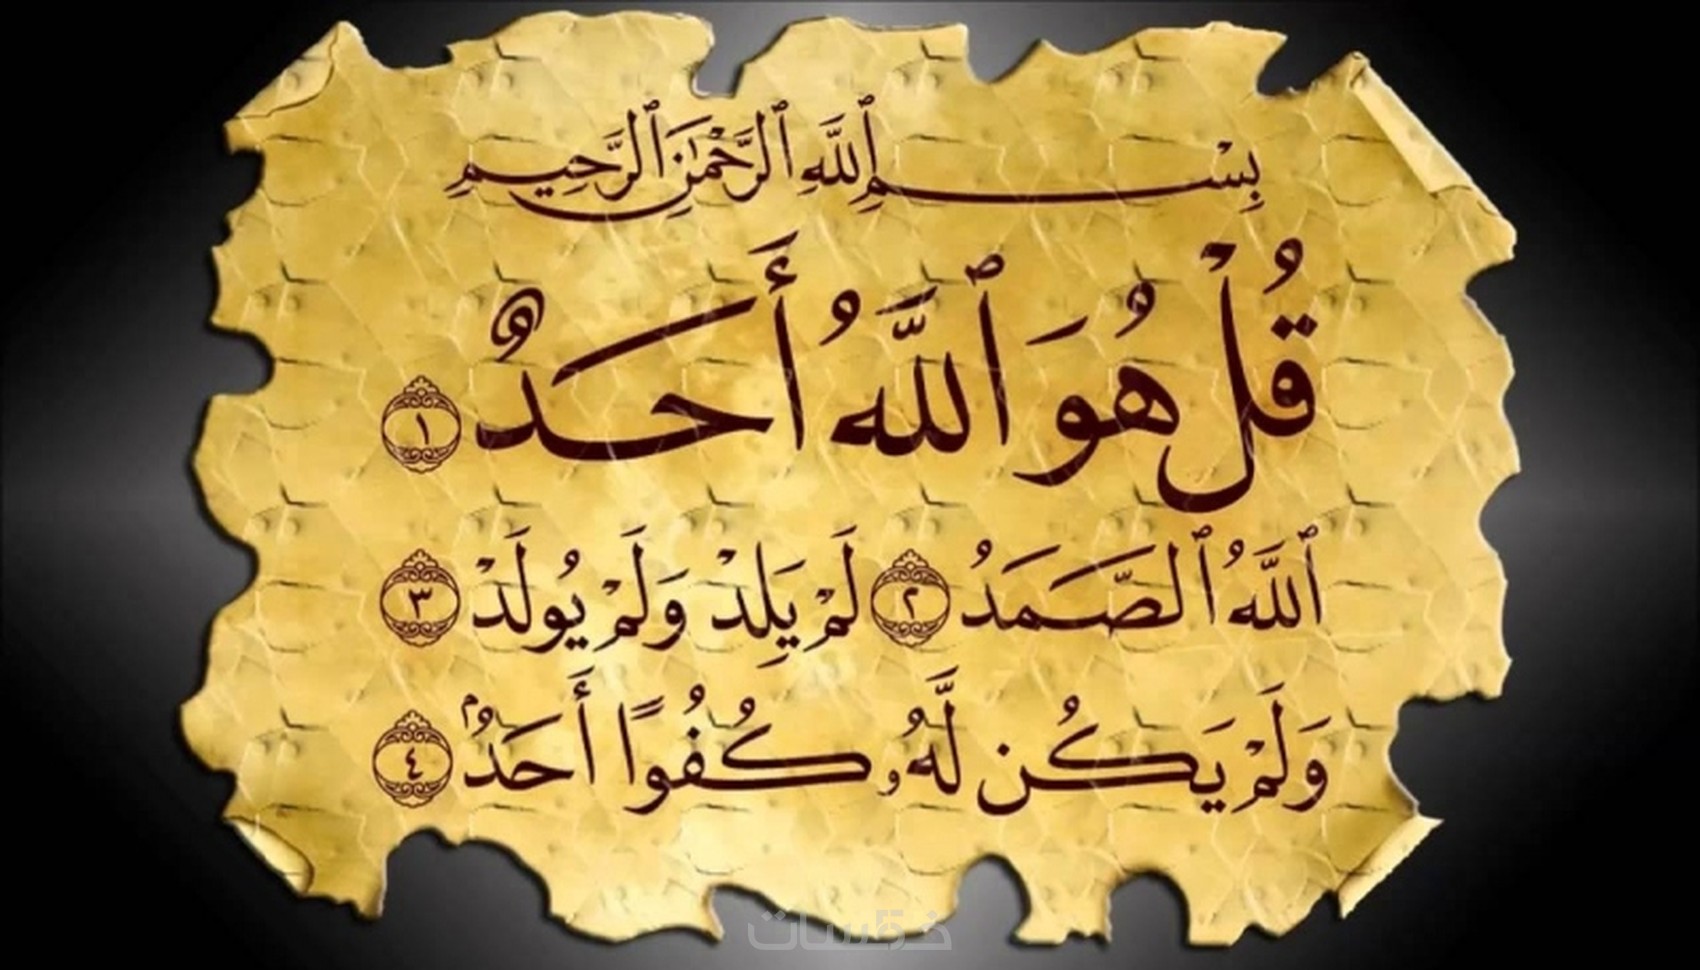 بِسْمِ ٱللَّهِ ٱلرَّحْمَٰنِ ٱلرَّحِيمِ
قُلْ هُوَ ٱللَّهُ أَحَدٌ ١
ٱللَّهُ ٱلصَّمَدُ ٢ لَمْ يَلِدْ وَلَمْ يُولَدْ ٣
وَلَمْ يَكُن لَّهُۥ كُفُوًا أَحَدُۢ ٤
خمسات